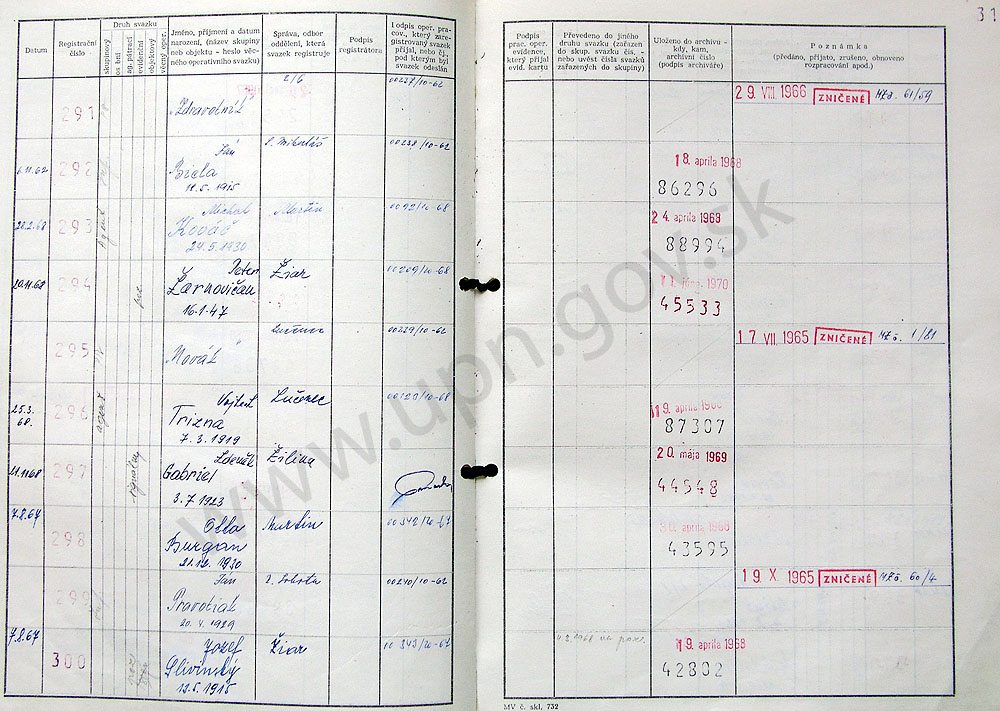 31
Datum
Registrační číslo
Druh svazku
skupinový
os brtí
an. pátrací
evidenční
objektový
věcný oper.
Jméno, příjmení a datum
narození, (název skupiny
neb objektu - heslo věc-
ného operativního svazku)
Správa, odbor
oddělení, která
svazek registruje
Podpis
registrátora
Podpis oper. pra-
cov., který zare-
gistrovaný svazek
přijal, nebo čj.,
pod kterým byl
svazek odeslán
Podpis
prac. oper.
evidence,
který přijal
evid. kartu
Převedeno do jiného
druhu svazku (zařazen
do skup. svazku čís. -
nebo uvést čísla svazků
zařazených do skupiny)
Uloženo do archivu -
kdy, kam,
archivní číslo
(podpis archiváře)
Poznámka
(předáno, přijato, zrušeno, obnoveno
rozpracování apod.)
291 „Zdravotník" 2/6 00227/10-62 29 VIII 1966 ZNIČENÉ 61/59
6.11.62 292 Ján Biela 11.5.1915 L. Mikuláš 00238/10-62 18. apríla 1968 86296
20.2.68 293 agent Michal Kováč 24.5.1930 Martin 0092/20-68 24. apríla 1969 88994
20.11.68 294 Peter Žarnovičan 16.1.47 Žiar 00209/20-68 1970 45533
295 „Novák" Lučenec 00229/10-62 17 VII 1965 ZNIČENÉ 1/81
25.3.68. 296 agent Vojtech Trizna 7.3.1919 Lučenec 00129/20-68 19. apríla 87307
21.11.68 297 signálny Zdeněk Gabriel 3.7.1923 Žilina 20 mája 1969 44548
7.8.67 298 Otto Burgan 21.12.1930 Martin 00342/20-67 30 apríla 1968 43595
299 Ján Pravotiak 20.4.1929 00240/10-62 19 X. 1965 ZNIČENÉ 60/4
7.8.67 300 Jozef Slivinský 12.5.1915 Žiar 00343/20-67 19 apríla 1968 42802
MV č. skl. 732
www.upn.gov.sk